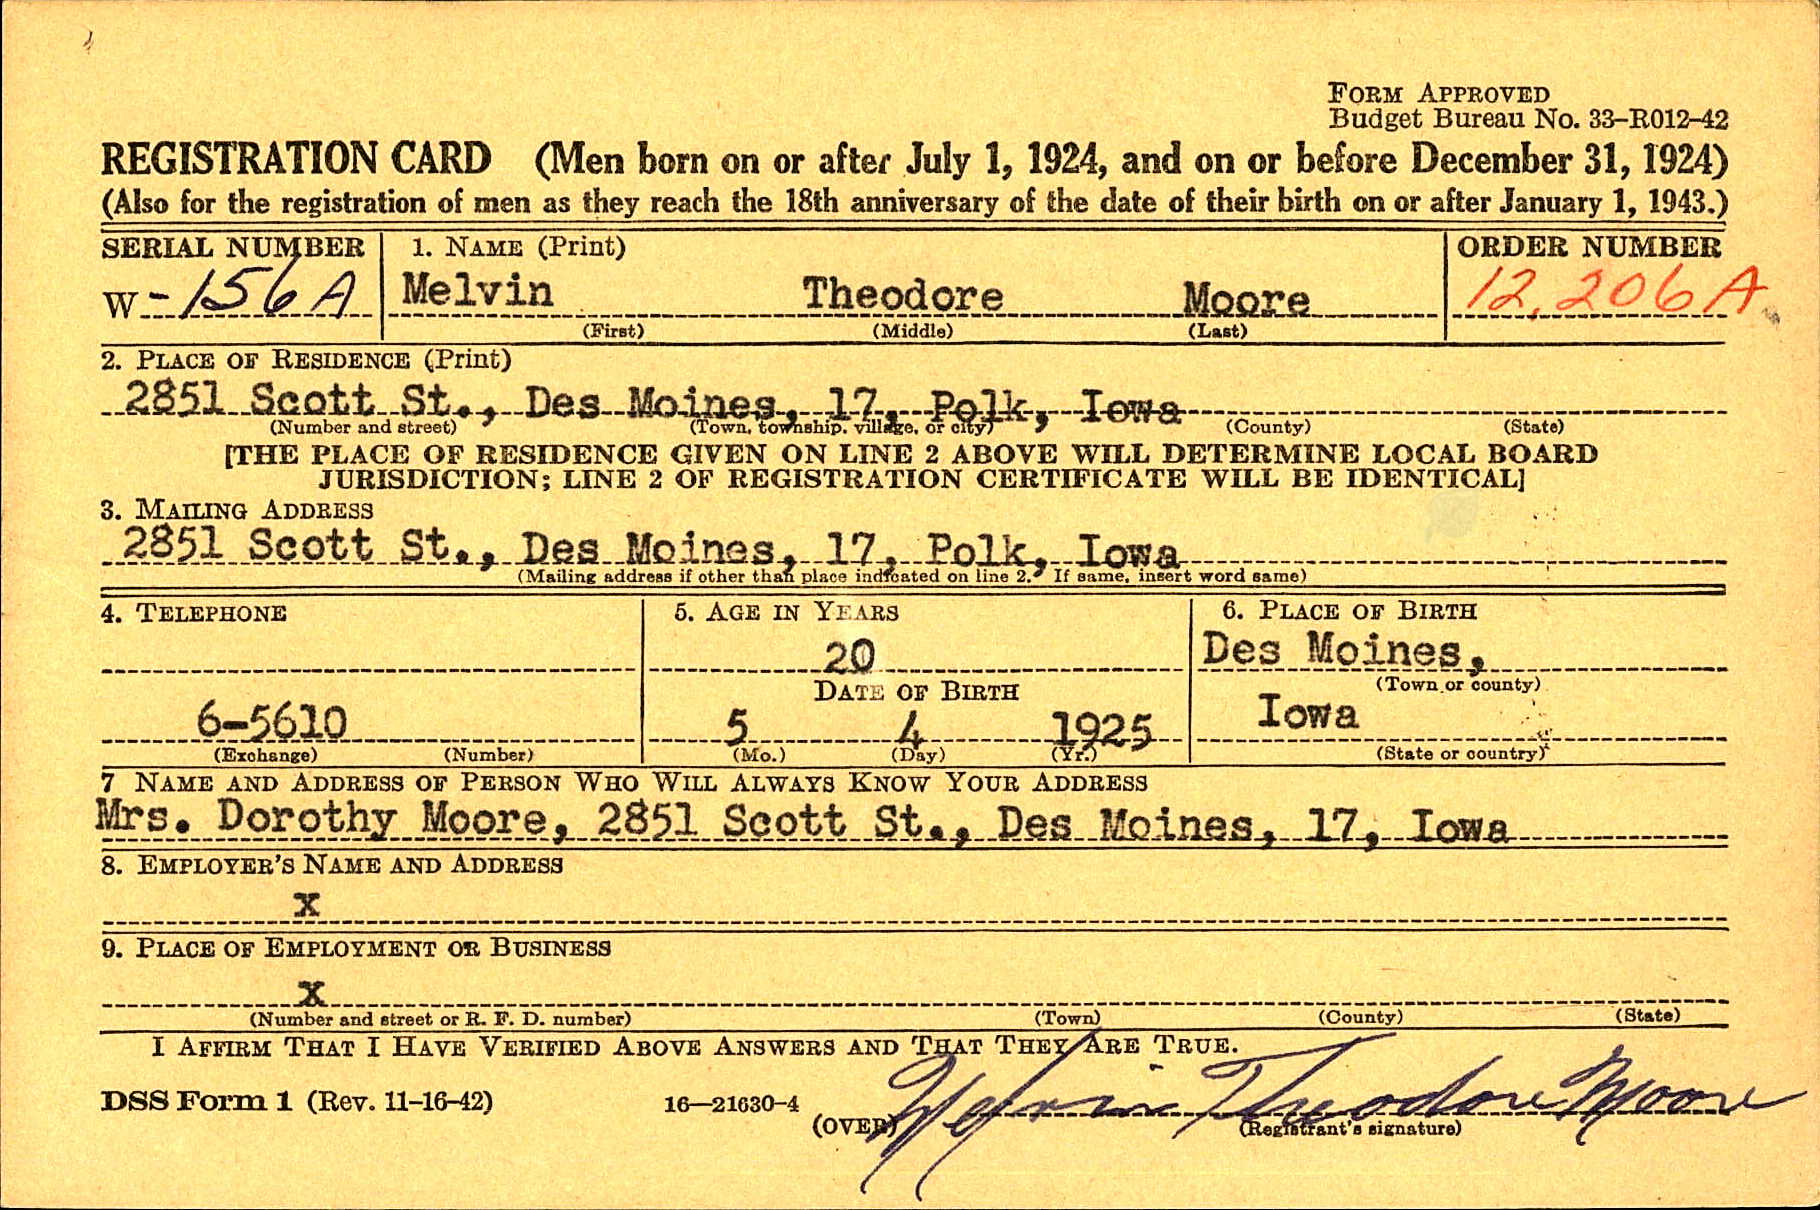 FORM APPROVED
Budget Bureau No. 33-R012-42
REGISTRATION CARD (Men born on or after July 1, 1924, and on or before December 31, 1924)
(Also for the registration of men as they reach the 18th anniversary of the date of their birth on or after January 1, 1943.)
SERIAL NUMBER 1. NAME (Print) ORDER NUMBER
W-156A Melvin Theodore Moore 12,206A
(First) (Middle) (Last)
2. PLACE OF RESIDENCE (Print)
2851 Scott St., Des Moines, 17, Polk, Iowa
(Number and street) (Town, township, village, or city) (County) (State)
[THE PLACE OF RESIDENCE GIVEN ON LINE 2 ABOVE WILL DETERMINE LOCAL BOARD
JURISDICTION; LINE 2 OF REGISTRATION CERTIFICATE WILL BE IDENTICAL]
3. MAILING ADDRESS
2851 Scott St., Des Moines, 17, Polk, Iowa
(Mailing address if other than place indicated on line 2. If same, insert word same)
4. TELEPHONE 5. AGE IN YEARS 6. PLACE OF BIRTH
20 Des Moines,
DATE OF BIRTH (Town or county)
6-5610 5 4 1925 Iowa
(Exchange) (Number) (Mo.) (Day) (Yr.) (State or country)
7 NAME AND ADDRESS OF PERSON WHO WILL ALWAYS KNOW YOUR ADDRESS
Mrs. Dorothy Moore, 2851 Scott St., Des Moines, 17, Iowa
8. EMPLOYER'S NAME AND ADDRESS
x
9. PLACE OF EMPLOYMENT OR BUSINESS
x
(Number and street or R. F. D. number) (Town) (County) (State)
I AFFIRM THAT I HAVE VERIFIED ABOVE ANSWERS AND THAT THEY ARE TRUE.
DSS Form 1 (Rev. 11-16-42) 16-21630-4 (OVER) Melvin Theodore Moore
(Registrant's signature)